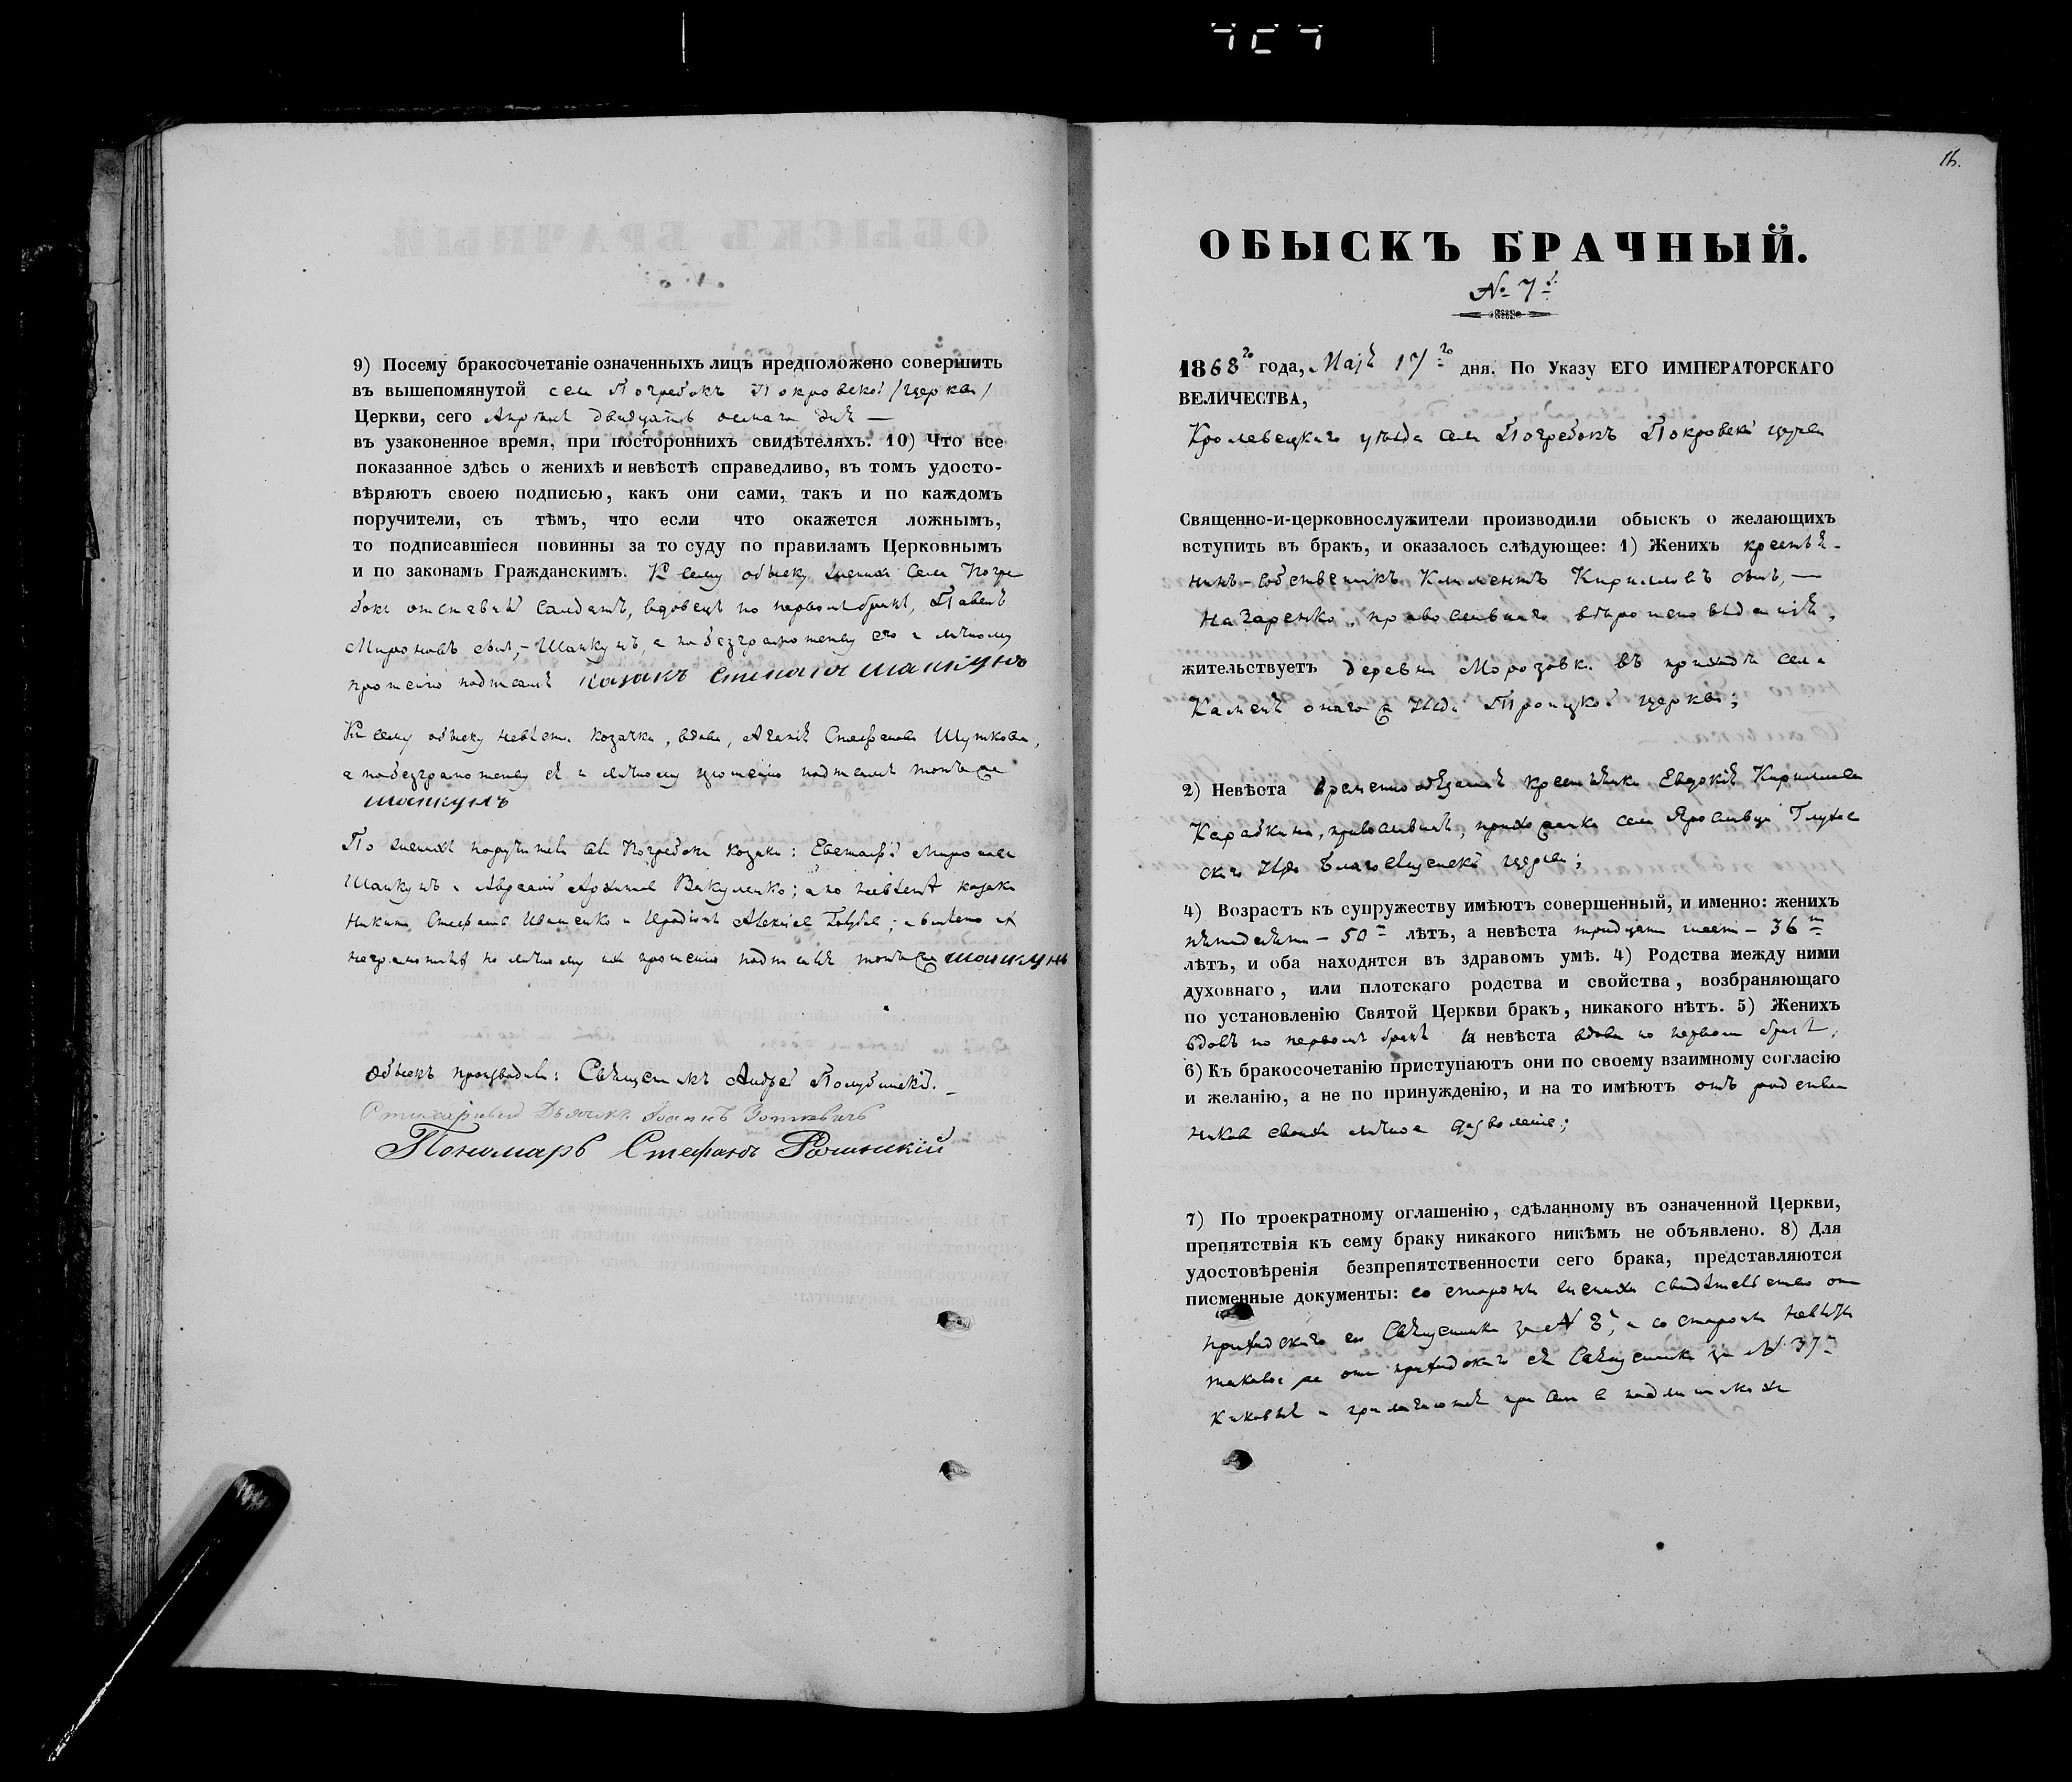 9) Посему бракосочетаніе означенныхъ лицъ предположено совершить
въ вышепомянутой села Погребокъ Покровской /церкви/
Церкви, сего Апрѣля двадцать осмаго дня —
въ узаконенное время, при постороннихъ свидѣтеляхъ. 10) Что все
показанное здѣсь о женихѣ и невѣстѣ справедливо, въ томъ удосто-
вѣряютъ своею подписью, какъ они сами, такъ и по каждомъ
поручители, съ тѣмъ, что если что окажется ложнымъ,
то подписавшіеся повинны за то суду по правиламъ Церковнымъ
и по законамъ Гражданскимъ. К сему обыску женихъ села Погре
бокъ отставный солдатъ, вдовецъ по первомъ бракѣ, Павелъ
Мироновъ сынъ,- Шапкунъ, а по безграмотству его и личному
прошенію подписалъ казакъ Степанъ шапкунъ
К сему обыску невѣста козачка, вдова, Агапія Стефанова Шуткова,
а по безграмотству ея и личному прошенію подписалъ тотъ же
шапкунъ
По женихѣ поручители села Погребокъ козаки: Евстафій Миронов
Шапкунъ и Авраамій Вакуленко; а по невѣстѣ козаки
Никита Стефановъ Иващенко и Иродіонъ Алексѣев; а вмѣсто их
неграмотныхъ по личному их прошенію подписалъ тотъ же шапкунъ
Обыскъ производили: Священникъ Андрей
Стихарный Дьячокъ Іоаннъ
Пономарь Стефанъ
16.
ОБЫСКЪ БРАЧНЫЙ.
№ 7й
1868го года, Маія 17го дня. По Указу ЕГО ИМПЕРАТОРСКАГО
ВЕЛИЧЕСТВА,
Кролевецкаго уѣзда села Погребокъ Покровской церкви
Священно-и-церковнослужители производили обыскъ о желающихъ
вступить въ бракъ, и оказалось слѣдующее: 1) Женихъ крестья-
нинъ-собственникъ Климентъ Кирилловъ сынъ, —
Назаренко, православнаго вѣроисповѣданія,
жительствуетъ деревни Морозовки въ приходѣ села
Каменя онаго ж уѣзда Троицкой церкви;
2) Невѣста временнообязанная крестьянка Евдокія Кириллова
Карабкина, православная, прихожанка села Ярославца Глухов
скаго уѣзда Благовѣщенской церкви;
4) Возрастъ къ супружеству имѣютъ совершенный, и именно: женихъ
пятидесяти — 50ти лѣтъ, а невѣста тридцати шести — 36ти
лѣтъ, и оба находятся въ здравомъ умѣ. 4) Родства между ними
духовнаго, или плотскаго родства и свойства, возбраняющаго
по установленію Святой Церкви бракъ, никакого нѣтъ. 5) Женихъ
вдовъ по первомъ бракѣ а невѣста вдова по первом бракѣ;
6) Къ бракосочетанію приступаютъ они по своему взаимному согласію
и желанію, а не по принужденію, и на то имѣютъ отъ родствен
никовъ своихъ личное дозволеніе;
7) По троекратному оглашенію, сдѣланному въ означенной Церкви,
препятствія къ сему браку никакого никѣмъ не объявлено. 8) Для
удостовѣренія безпрепятственности сего брака, представляются
писменные документы: со стороны жениха свидѣтельство от
приходскаго его Священника за № 8, а со стороны невѣсты
таковое же от приходскаго ея Священника за № 37
каковыя и прилагаются при сем в подлинникахъ